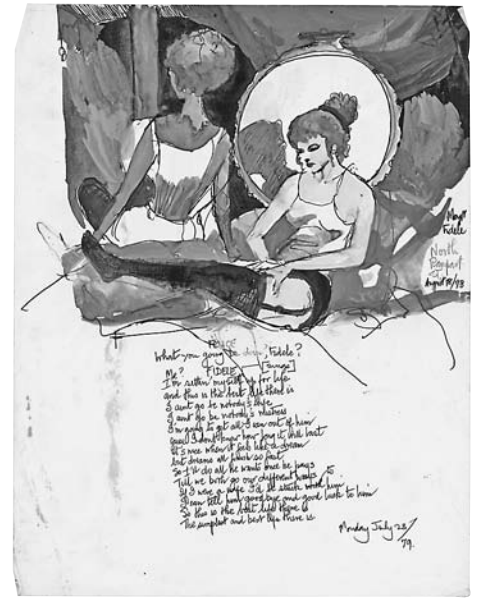 May
Fidele
North
Rampart
St
August 18/73
What you going be doin', Fidele?
FIDELE
Me?
I'm settin' myself up for life
and this is the best life there is
I aint go be nobody's wife
I aint go be nobody's mistress
I'm going to get all I can out of him
guess I don't know how long it will last
It's nice when it feels like a dream
but dreams all finish so fast
So I'll do all he wants once he pays
Till we both go our different ways
If I were a wife I'd be stuck with him
I can tell him goodbye and good luck to him
So this is the best life there is
The simplest and best life there is
Monday July 23/
79.